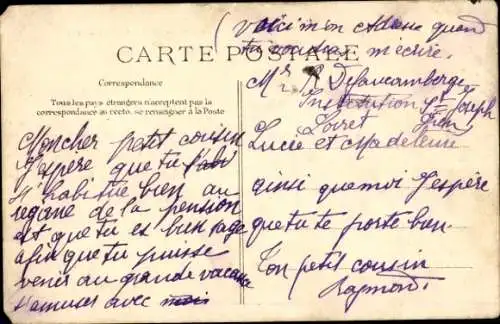 (voici mon adresse quand
tu voudras m'écrire.
CARTE POSTALE
Mr
Institution St Joseph
Loiret
Correspondance
Tous les pays étrangers n'acceptent pas la
correspondance au recto, se renseigner à la Poste
Moncher petit cousin
J'espère que tu
t'habitue bien au
regane de la pension
et que tu es bien sage
afin que tu puisse
venir au grande vacance
t'amuser avec moi
Lucie et Madeleine
ainsi que moi J'espère
que tu te porte bien.
Ton petit cousin
Raymond.